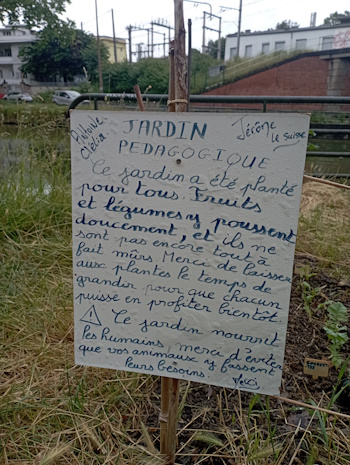 Antoine
Clélia
JARDIN
Jérôme
le suisse
PEDAGOGIQUE
Ce jardin a été planté
pour tous. Fruits
et légumes y poussent
doucement, et ils ne
sont pas encore tout à
fait mûrs. Merci de laisser
aux plantes le temps de
grandir pour que chacun
puisse en profiter bientôt.
⚠ Ce jardin nourrit
les humains, merci d'éviter
que vos animaux y fassent
leurs besoins. Merci